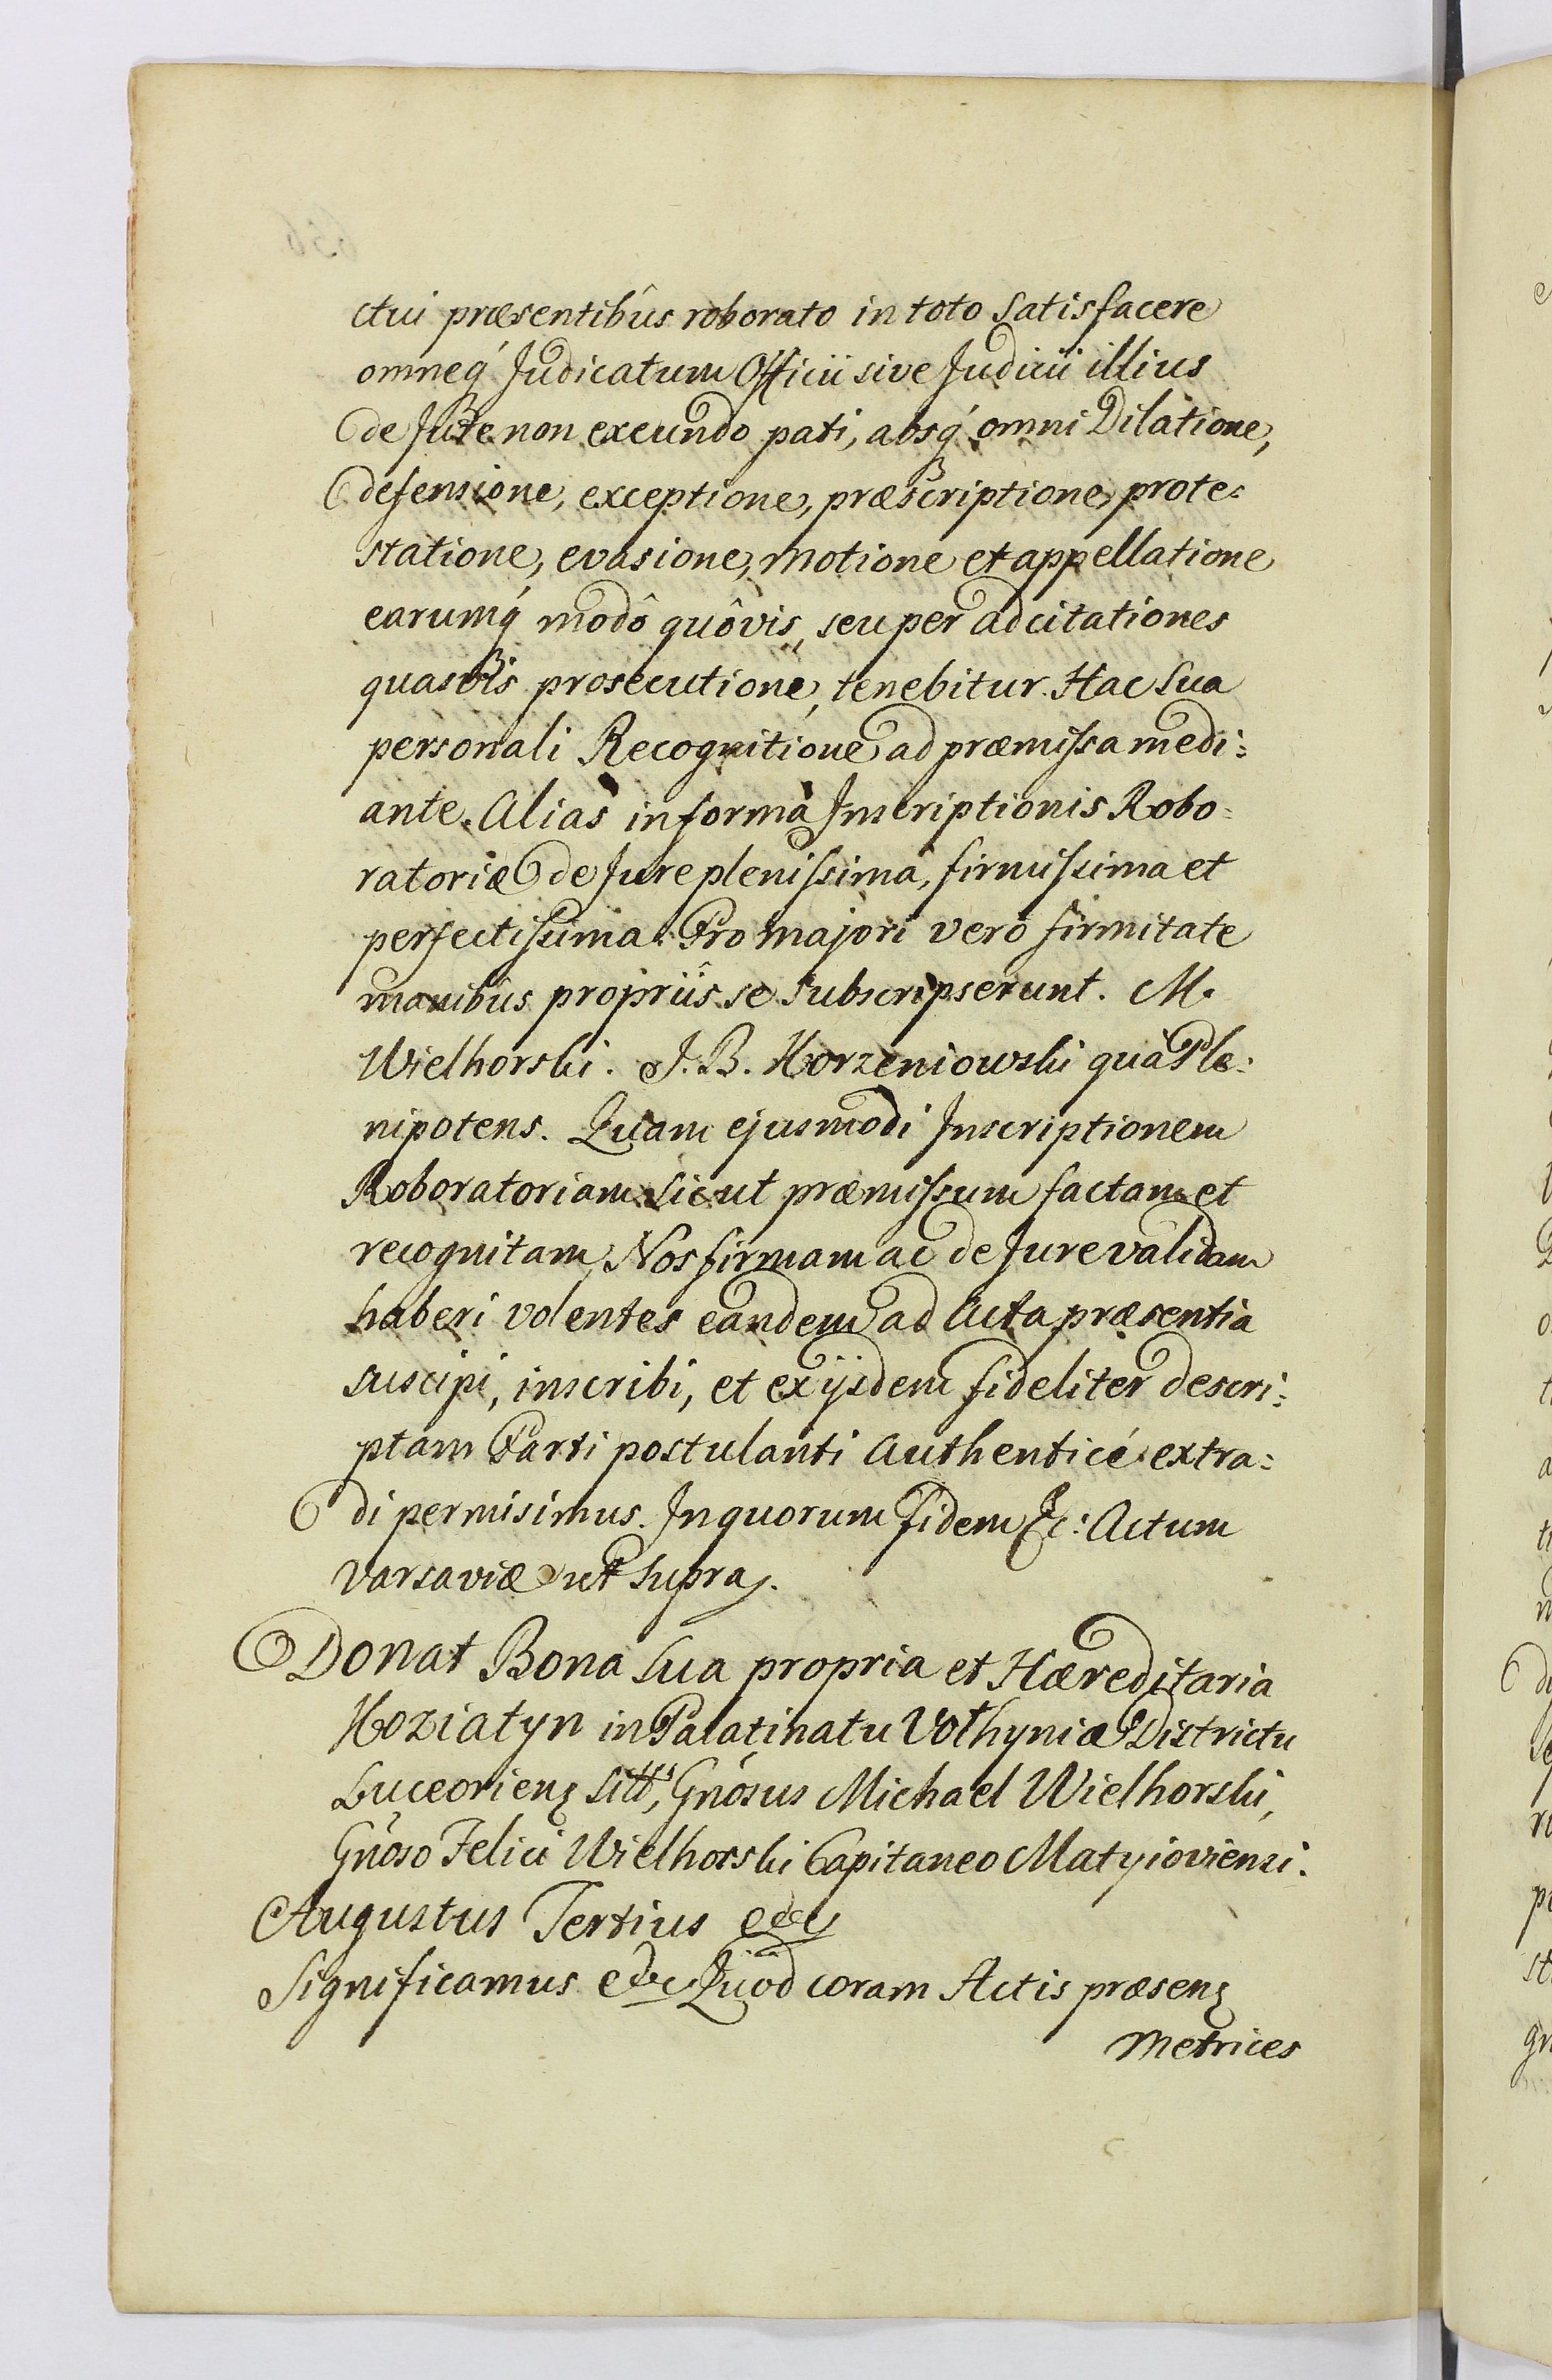 ctui præsentibûs roborato in toto Satisfacere
omneq́ Judicatum Officii sive Judicii illius
de Jure non exeundo pati, absq́ omni Dilatione,
defensione, exceptione, præscriptione, prote=
statione, evasione, motione et appellatione
earumq́ modô quôvis, seu per adcitationes
quasvis prosecutione, tenebitur. Hac Sua
personali Recognitione ad præmissa medi=
ante. Alias in forma Inscriptionis Robo=
ratoriæ de Jure plenissima, firmissima et
perfectissima. Pro majori verò firmitate
manibûs propriis se subscripserunt. M.
Wielhorski. J. B. Korzeniowski quà Ple=
nipotens. Quam ejusmodi Inscriptionem
Roboratoriam Sicut præmissum factam et
recognitam, Nos firmam ac de Jure validam
haberi volentes eandem ad Acta præsentia
suscipi, inscribi, et ex ijsdem fideliter descri=
ptam Parti postulanti Authenticé extra=
di permisimus. In quorum fidem &c: Actum
Varsaviæ ut Supra.
Donat Bona Sua propria et Hæreditaria
Koziatyn in Palatinatu Volhyniæ Districtu
Luceorienȝ Gnosus Michael Wielhorski,
Gnoso Felici Wielhorski Capitaneo Matyioviensi.
Augustus Tertius &c
Significamus &c Quod coram Actis præsenȝ
Metrices